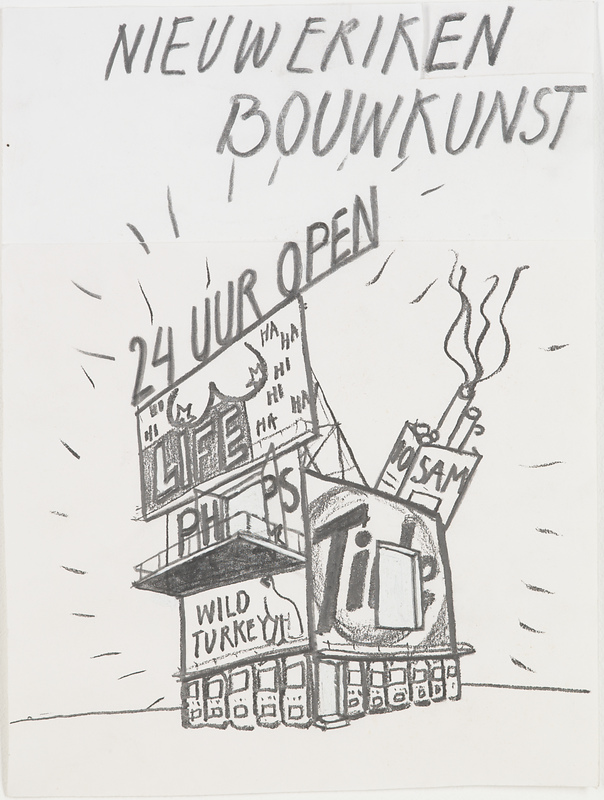 NIEUWERIKEN
BOUWKUNST
24 UUR OPEN
HA
HA
HI
HI
HA
HA
HI
HI
LIFE
PH PS
SAM
Tide
WILD
TURKEY